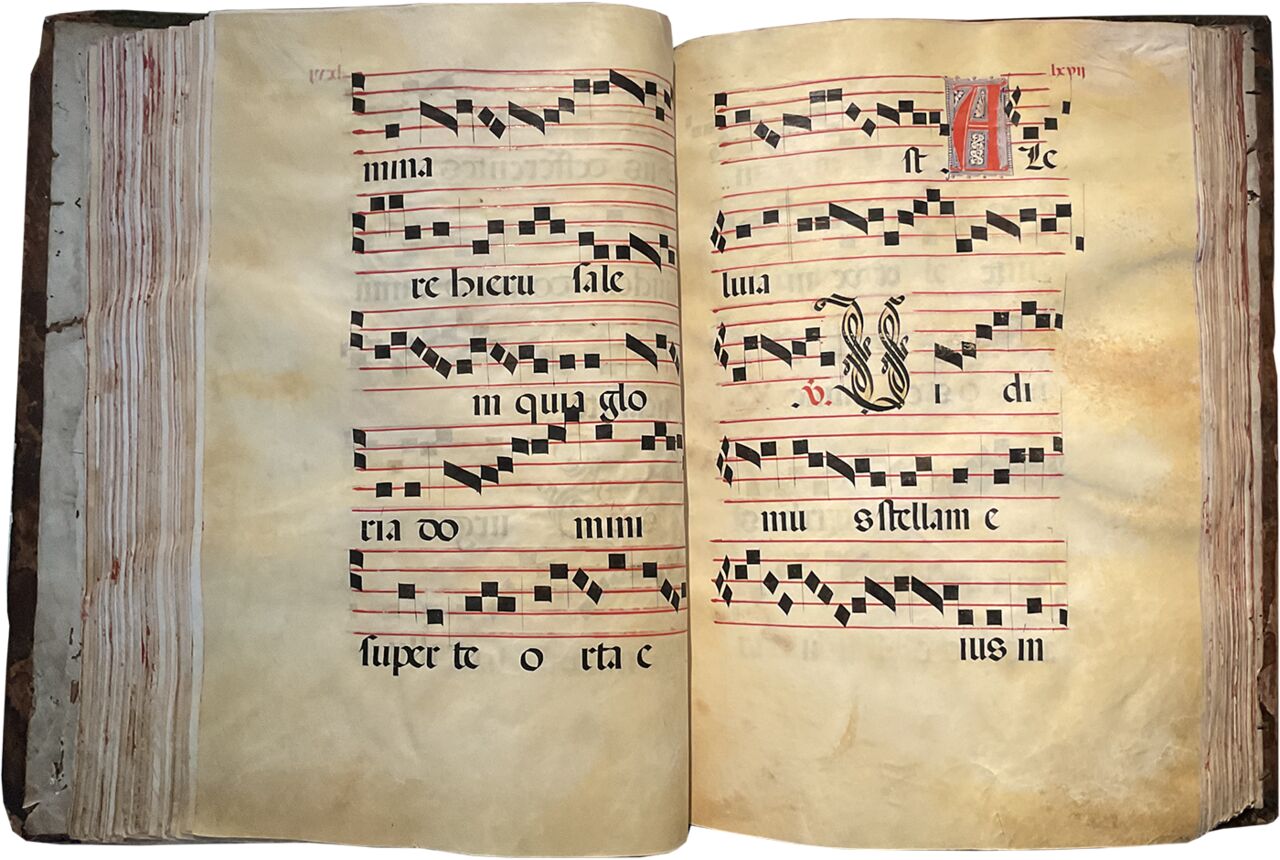 mina
re hieru sale
m quia glo
ria do mini
super te o rta e
lxvij
st. Ale
luia
.v. Vi di
mu s stellam e
ius in